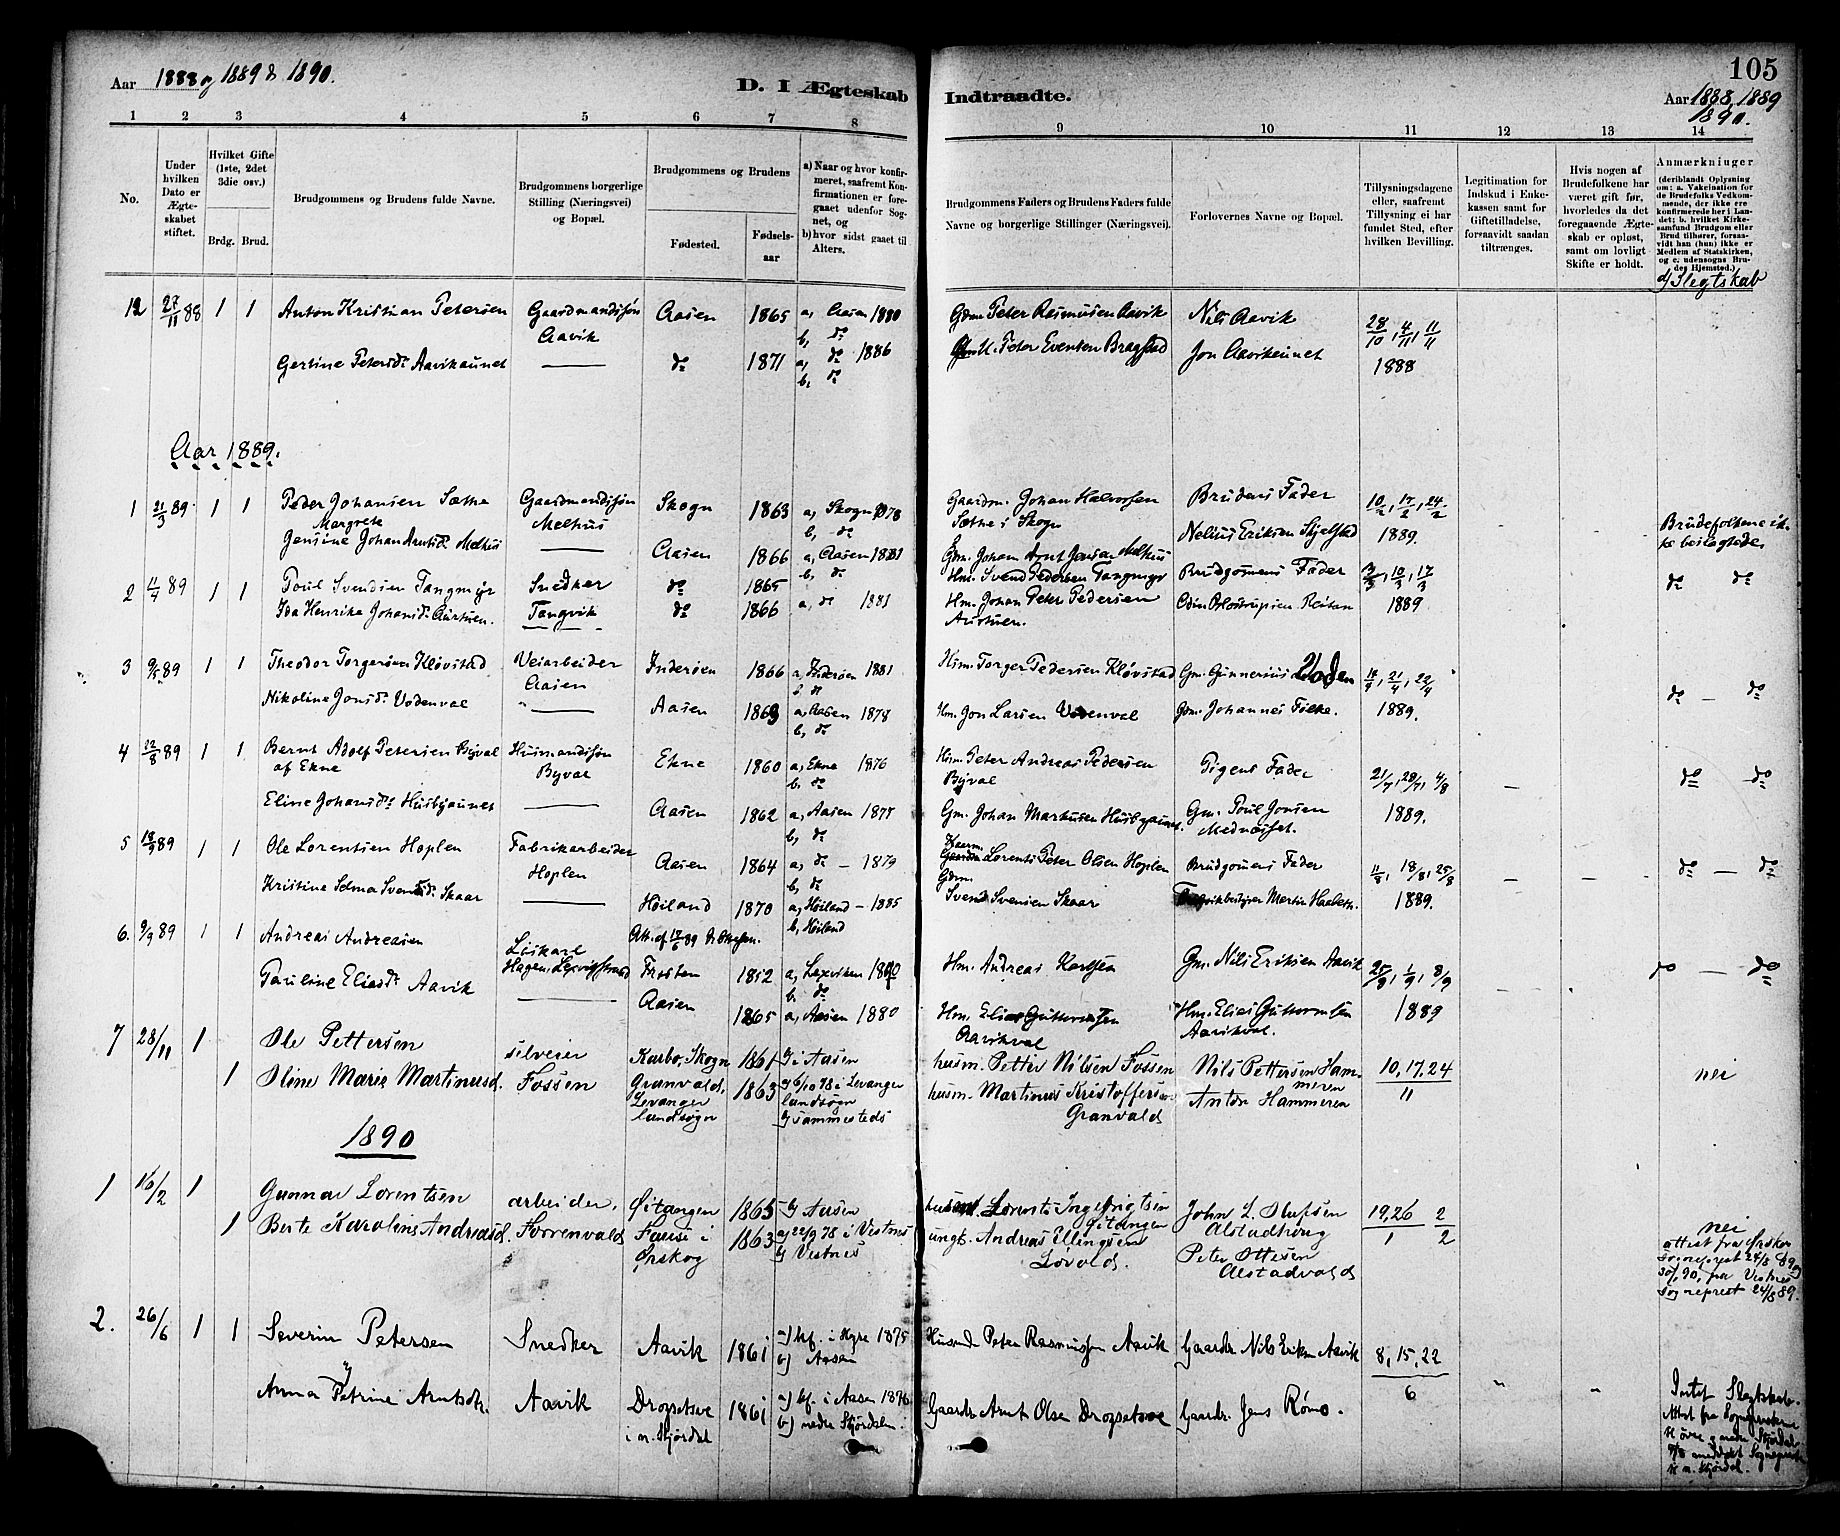 105
Aar 1888 og 1889 & 1890.
D. I Ægteskab Indtraadte.
Aar 1888, 1889
1890.
1 2 3 4 5 6 7 8 9 10 11 12 13 14
No.
Under hvilken Dato er Ægteskabet stiftet.
Hvilket Gifte (1ste, 2det 3die osv.)
Brdg. Brud.
Brudgommens og Brudens fulde Navne.
Brudgommens borgerlige Stilling (Næringsvei) og Bopæl.
Brudgommens og Brudens
Fødested.
Fødselsaar
a) Naar og hvor konfirmeret, saafremt Konfirmationen er foregaaet udenfor Sognet, og
b) hvor sidst gaaet til Alters.
Brudgommens Faders og Brudens Faders fulde Navne og borgerlige Stillinger (Næringsvei).
Forlovernes Navne og Bopæl.
Tillysningsdagene eller, saafremt Tillysning ei har fundet Sted, efter hvilken Bevilling.
Legitimation for Indskud i Enkekassen samt for Giftetilladelse, forsaavidt saadan tiltrænges.
Hvis nogen af Brudefolkene har været gift før, hvorledes da det foregaaende Ægteskab er opløst, samt om lovligt Skifte er holdt.
Anmærkninger
(deriblandt Oplysning om: a. Vakcination for de Brudefolks Vedkommende, der ikke ere konfirmerede her i Landet; b. hvilket Kirkesamfund Brudgom eller Brud tilhører, forsaavidt han (hun) ikke er Medlem af Statskirken, og c. udensogns Brudes Hjemsted.)
d) Slegtskab
12 27/11 88 1 1 Anton Kristian Petersen Gaardmandssøn Aavik Aasen 1865 a, Aasen 1880 b, do Gdm. Peter Rasmusen Aavik Nils Aavik 28/10, 4/11, 11/11
Gertine Petersdr Aavikaunet — do 1871 a, do 1886 b, do Peter Evensen Bragstad Jon Aavikaunet 1888
Aar 1889.
1 21/3 89 1 1 Peder Johansen Sæthe Gaardmandssøn Melhus Skogn 1863 a, Skogn 1878 b, do Gaardm. Johan Halvorsen Sæthe i Skogn Brudens Fader 10/2, 17/2, 24/2
Margrete
Jensine Johan Arntsdr Melhus — Aasen 1866 a, Aasen 1881 b, do Gdm. Johan Arnt Jensen Melhus Nelius Eriksen Skjelstad 1889. Brudefolkene ikke beslægtede
2 11/4 89 1 1 Poul Svendsen Tangmyr Snedker do 1865 Hm. Svend Pedersen Tangmyr Brudgomens Fader 3/3, 10/3, 17/3 do do
Ida Henrika Johansdr Aurtuen. Tangvik do 1866 a, do 1881 Hm. Johan Peter Pedersen Austuen. Reitan 1889
3 9/5 89 1 1 Theodor Torgersen Kløvstad Veiarbeider Aasen Inderøen 1866 a, Inderøen 1881 b, do Hsm. Torger Pedersen Kløvstad Gm. Gunnerius Voden 14/4, 21/4, 22/4
Nikoline Jonsdr Vodenval — Aasen 1863 a, Aasen 1878 b, do Hm. Jon Larsen Vodenval Gdm. Johannes Folke. 1889. do — do
4 22/8 89 1 1 Bernt Adolf Petersen Byval af Ekne Husmandssøn Byval Ekne 1860 a, Ekne 1876 b, do Hsm. Peter Andreas Pedersen Byval Pigens Fader 21/7, 28/7, 4/8 do do
Eline Johansdr Husbyaunet — Aasen 1862 a, Aasen 1877 b, do Gm. Johan Markusen Husbyaunet. Gm. Poul Jonsen Mednasset. 1889.
5 18/9 89 1 1 Ole Lorentsen Hoplen Fabrikarbeider Hoplen Aasen 1864 a, do — 1879 b, do Lorents Peter Olsen Hoplen Brudgomens Fader 11/8, 18/8, 25/8 do — do
Kristine Selma Svendsdr Skaar — Høiland 1870 a, Høiland — 1885 b, Høiland Gdm. Svend Svensen Skaar Fabrikbestyrer Martin 1889.
6. 9/9 89 1 1 Andreas Andreasen Løskarl Hagen, Lexvigstrand Frosten 1852 a, Lexviken b, do Hm. Andreas Karlsen Gm. Nils Eriksen Aavik 25/8, 1/9, 8/9 do — do
Pauline Eliasdr Aavik — Aasen 1865 a, Aasen 1880 Hm. Elias Guttormsen Aavikval Hm. Elias Guttormsen Aavikval. 1889
7 28/11 1 Ole Pettersen selveier Karbo, Skogn 1861 b) i Aasen husm. Petter Nilsen Fossen Nils Pettersen Hammeren 10, 17, 24 nei
1 Oline Marie Martinusd. Fossen Granvald, Levanger landsogn 1863 a) 6/10 78 i Levanger landsogn b) sammesteds husm. Martinus Kristoffersen Granvald Anton Hammeren 11
1890
1 16/2 1 Gunnar Lorentsen arbeider, Øitangen 1865 b) Aasen husm. Lorents Ingebrigtsen Øitangen John L. Olufsen Alstadhaug 19, 26 2
1 Berte Karoline Andreasd. Forrenvald Fause i Ørskog 1863 a) 22/9 78 i Vestnes b) Vestnes ungk. Andreas Ellingsen Løvold. Peter Ottesen Alstadvald 1 2
nei
attest fra Ørskog
Sogneprest 24/8 89 og
fra Vestnes
Sogneprest 24/8 89.
2. 26/6 1 1 Severin Petersen Snedker Aavik 1861 a) kf. i 1875 b) Aasen Husmd Peter Rasmussen Aavik Gaardbr Nils Eriksen Aavik 8, 15, 22
Anna Petrine Arntsdtr. Aavik Drogsetsve i n. Stjørdal 1861 a) kf. i Aasen 1876 b) nedre Stjørdalen. Gaardbr Arnt Olsen Drogsetsve Gaardbr. Jens Rømo. 6
Intet Slegtskab.
Attest fra Sogneprestene